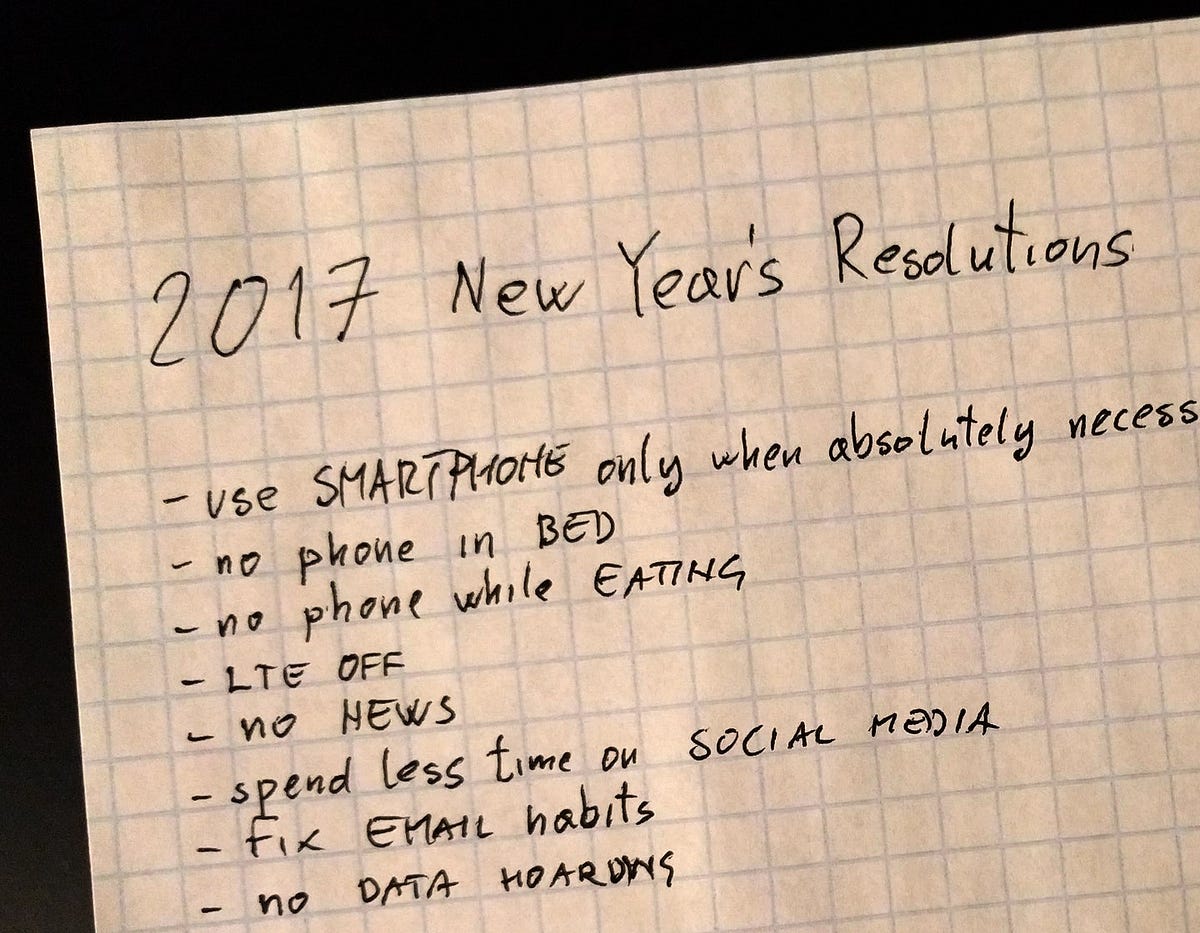 2017 New Year's Resolutions
- use SMARTPHONE only when absolutely necess
- no phone in BED
- no phone while EATING
- LTE OFF
- no NEWS
- spend less time on SOCIAL MEDIA
- fix EMAIL habits
- no DATA HOARDING